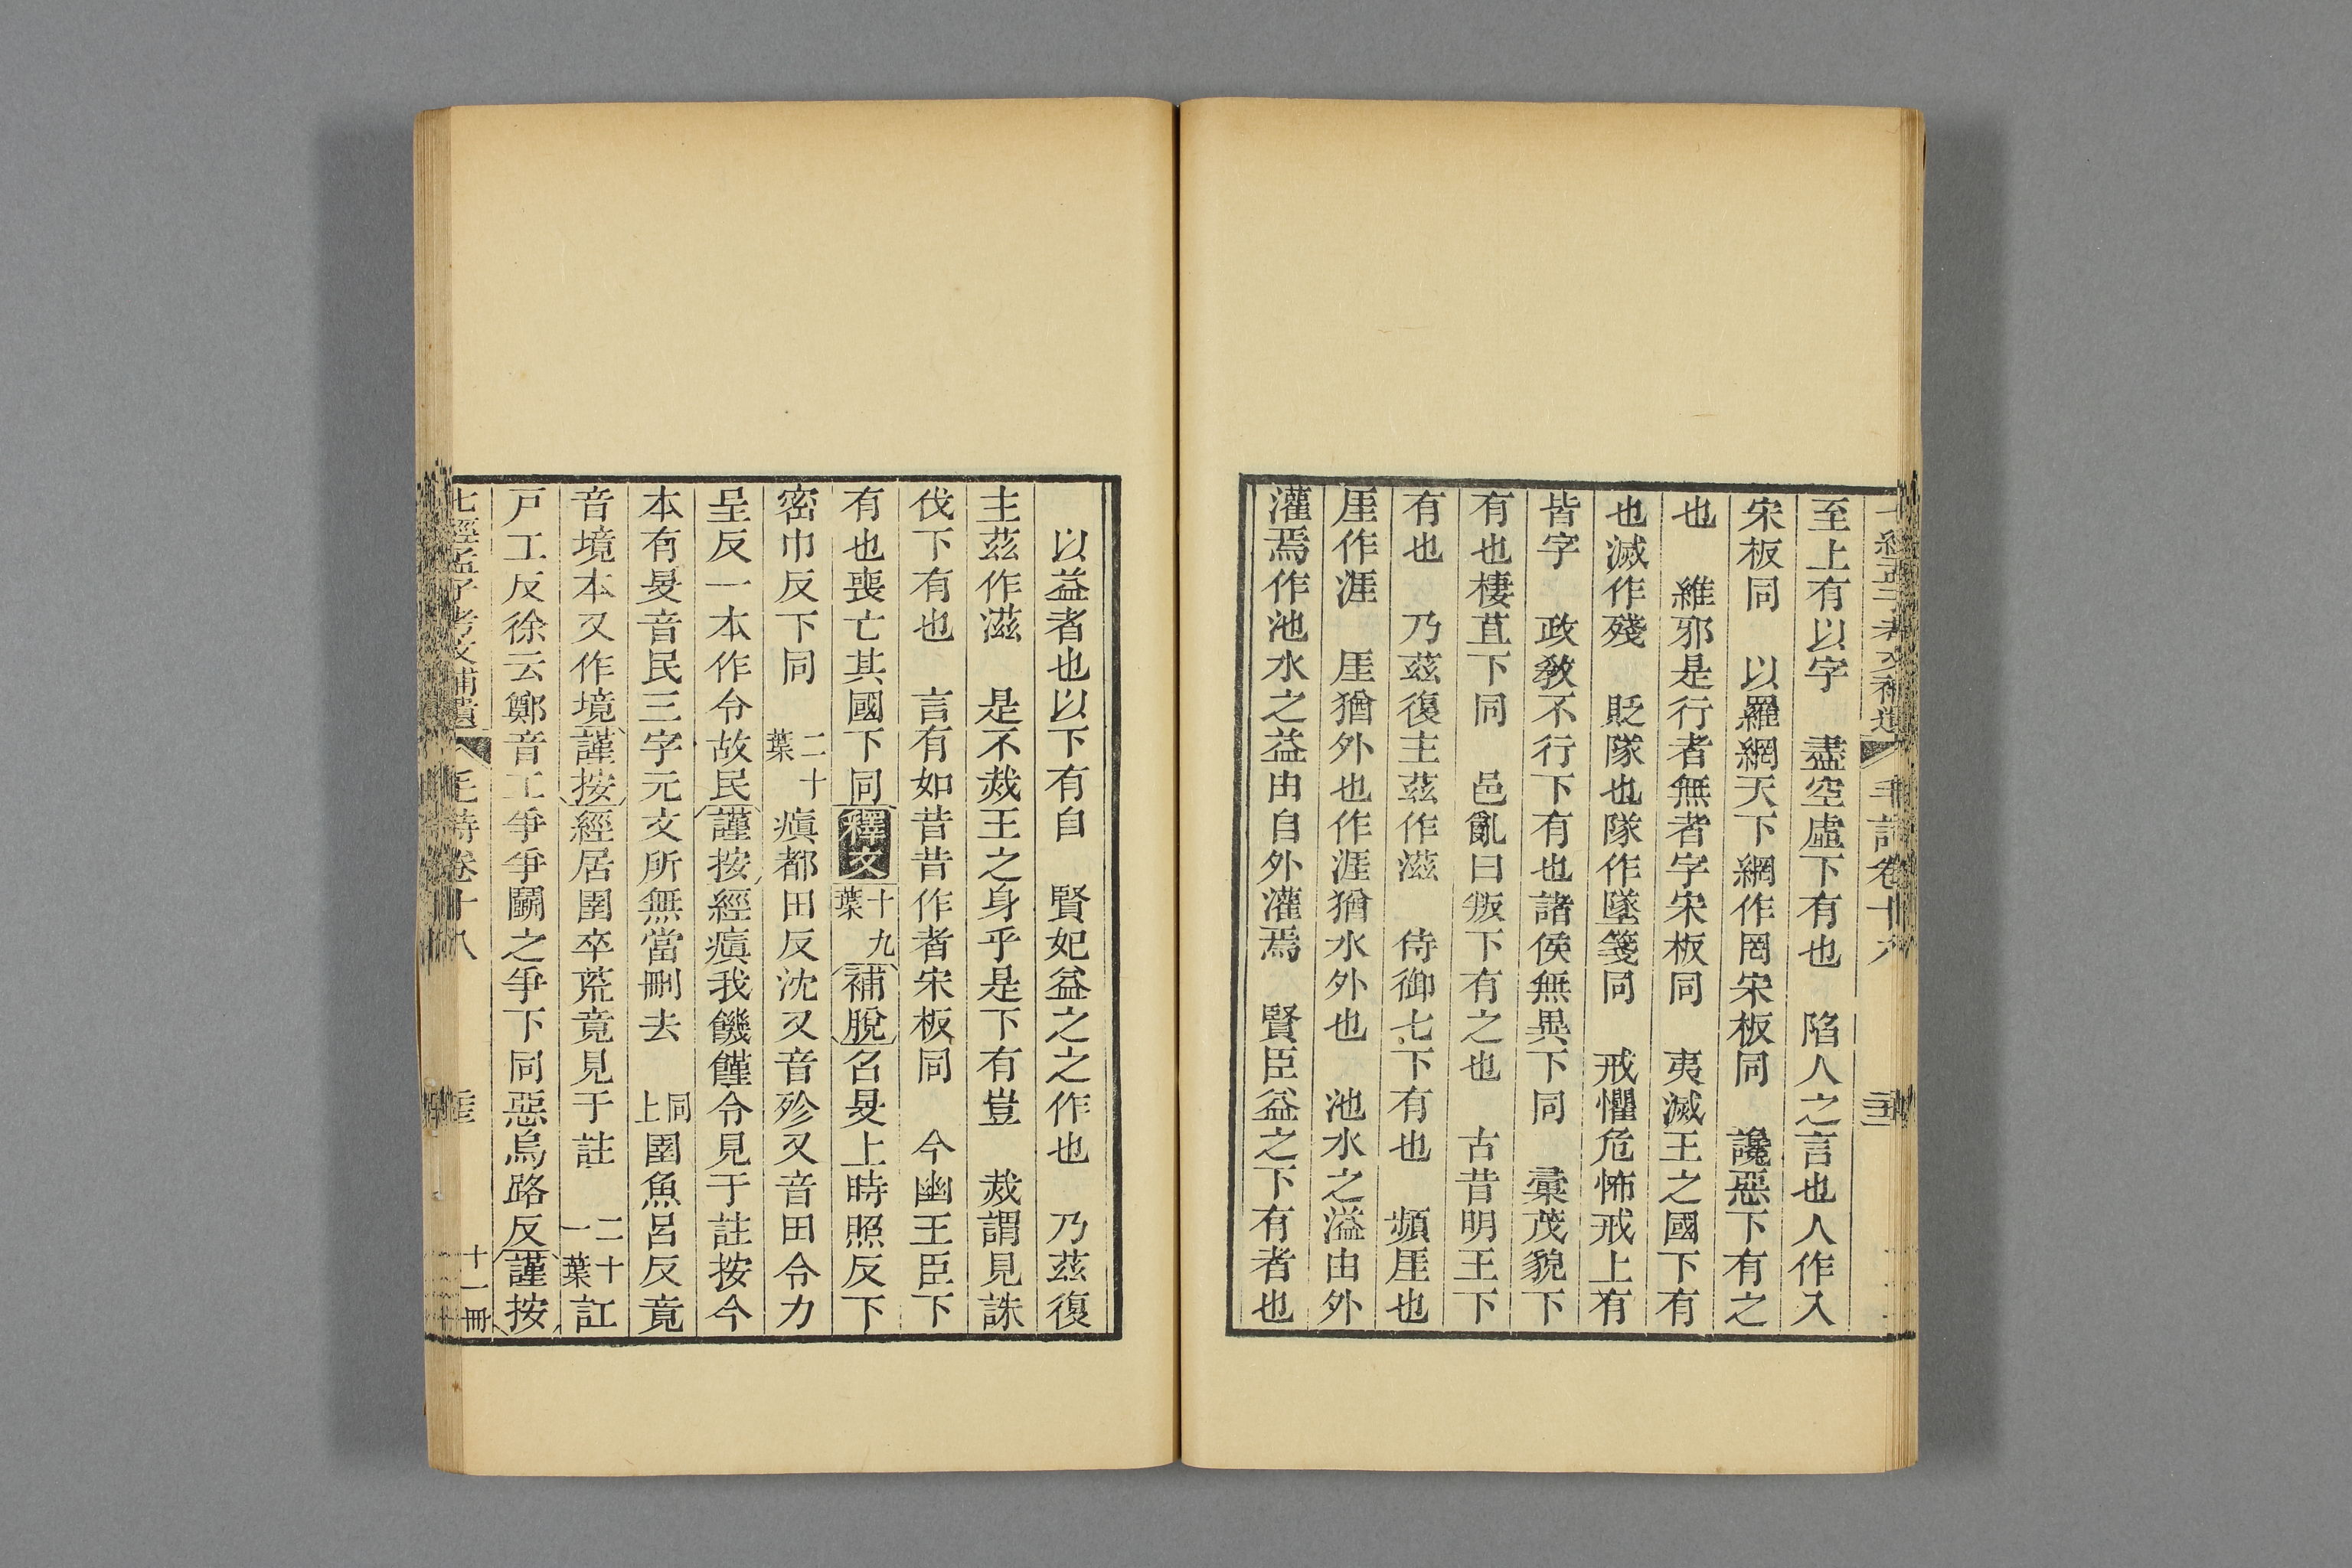 至上有以字　盡空虛下有也　陷人之言也人作入
宋板同　以羅網天下網作罔宋板同　讒惡下有之
也　維邪是行者無者字宋板同　夷滅王之國下有
也滅作殘　貶隊也隊作墜箋同　戒懼危怖戒上有
皆字　政敎不行下有也諸侯無異下同　彙茂貌下
有也棲苴下同　邑亂曰叛下有之也　古昔明王下
有也　乃茲復主茲作滋　侍御七下有也　頻厓也
厓作涯　厓猶外也作涯猶水外也　池水之溢由外
灌焉作池水之益由自外灌焉　賢臣益之下有者也
以益者也以下有自　賢妃益之之作也　乃茲復
主茲作滋　是不烖王之身乎是下有豈　烖謂見誅
伐下有也　言有如昔昔作者宋板同　今幽王臣下
有也喪亡其國下同釋文十九葉補脫召旻上時照反下
密巾反下同　二十葉瘨都田反沈又音殄又音田令力
呈反一本作令故民謹按經瘨我饑饉令見于註按今
本有旻音民三字元文所無當刪去　同上圉魚呂反竟
音境本又作境謹按經居圉卒荒竟見于註　二十一葉訌
戸工反徐云鄭音工爭爭鬬之爭下同惡烏路反謹按
七經孟子考文補遺　毛詩卷十八　十一冊